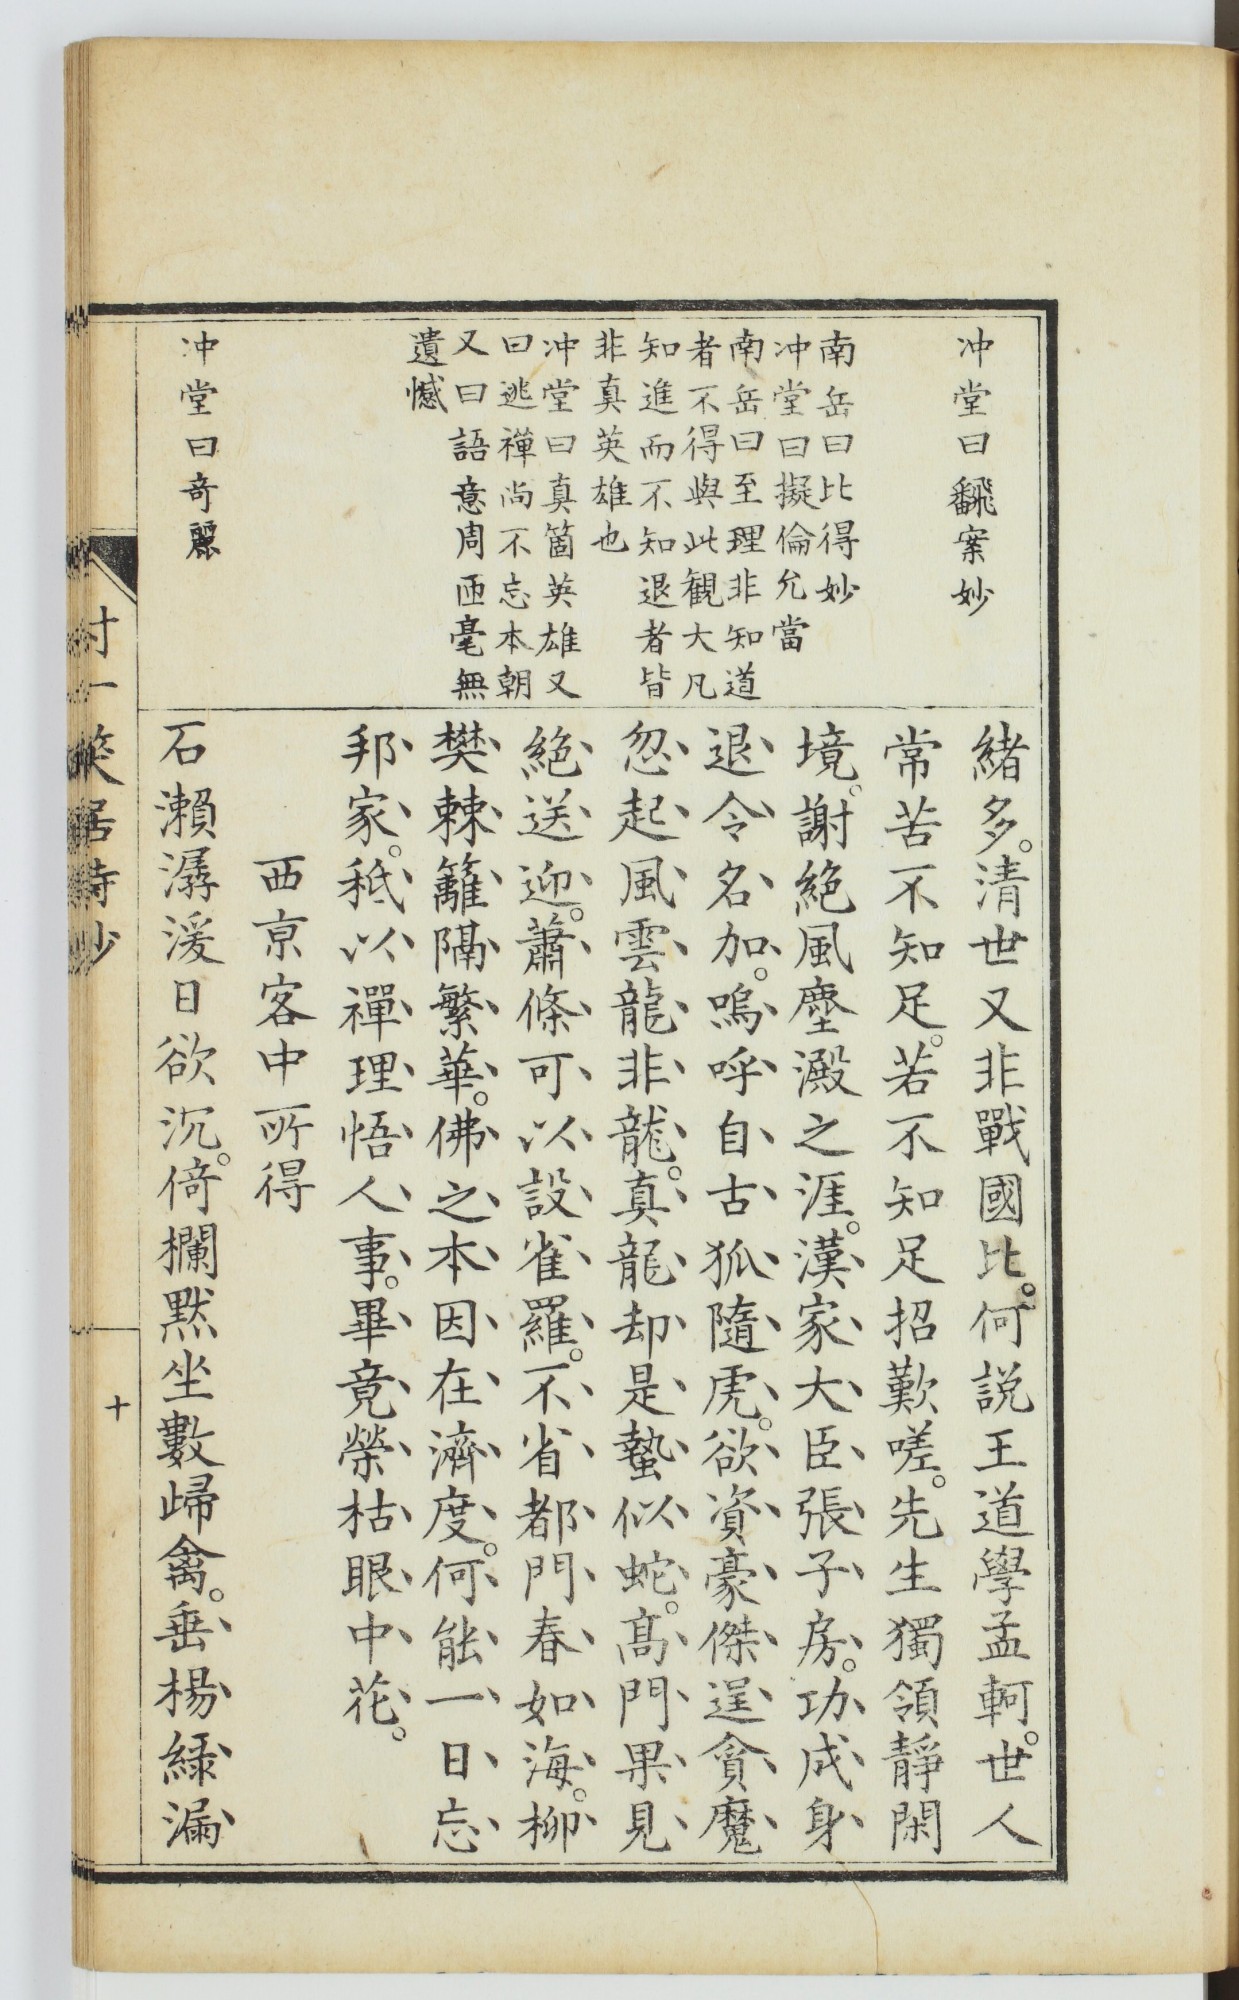 冲堂曰飜案妙
南岳曰比得妙
冲堂曰擬倫允當
南岳曰至理非知道
者不得與此観大凡
知進而不知退者皆
非真英雄也
冲堂曰真箇英雄又
曰逃禪尚不忘本朝
又曰語意周匝毫無
遺憾
冲堂曰奇麗
緒多。清世又非戰國比。何説王道學孟軻。世人
常苦不知足。若不知足招歎嗟。先生獨領靜閑
境。謝絶風塵澱之涯。漢家大臣張子房。功成身
退令名加。嗚呼自古狐隨虎。欲資豪傑逞貪魔
忽起風雲龍非龍。真龍却是蟄似蛇。髙門果見
絶送迎。蕭條可以設雀羅。不省都門春如海。柳
樊棘籬隔繁華。佛之本因在濟度。何能一日忘
邦家。秪以禪理悟人事。畢竟榮枯眼中花。
西亰客中所得
石瀨潺湲日欲沉。倚欄黙坐數歸禽。垂楊緑漏
十